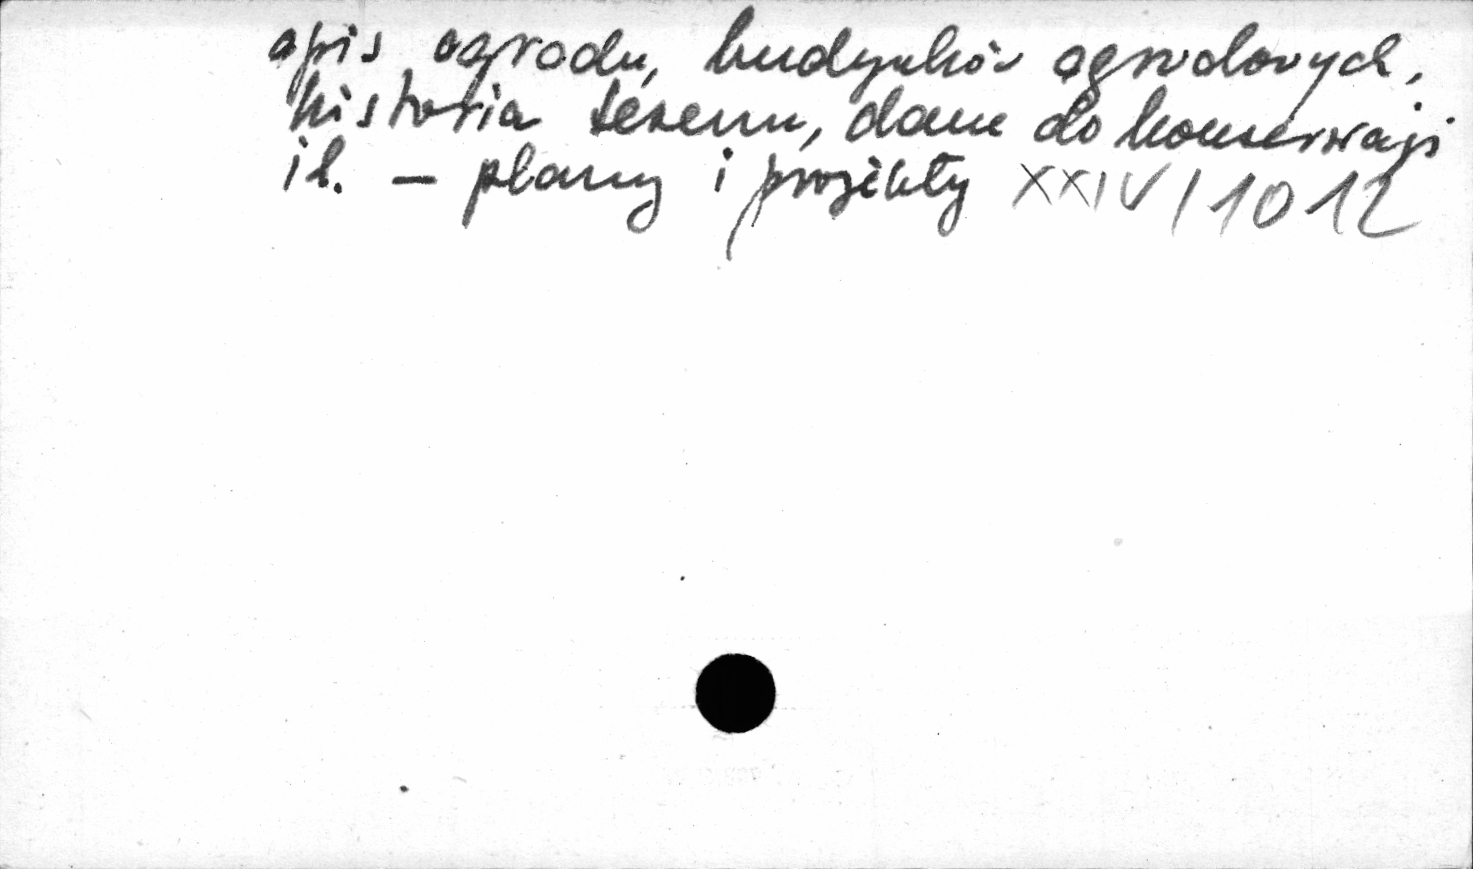 opis ogrodu, budynków ogrodowych,
historia terenu, dane do konserwacji
il. – plany i projekty XXIV/1012